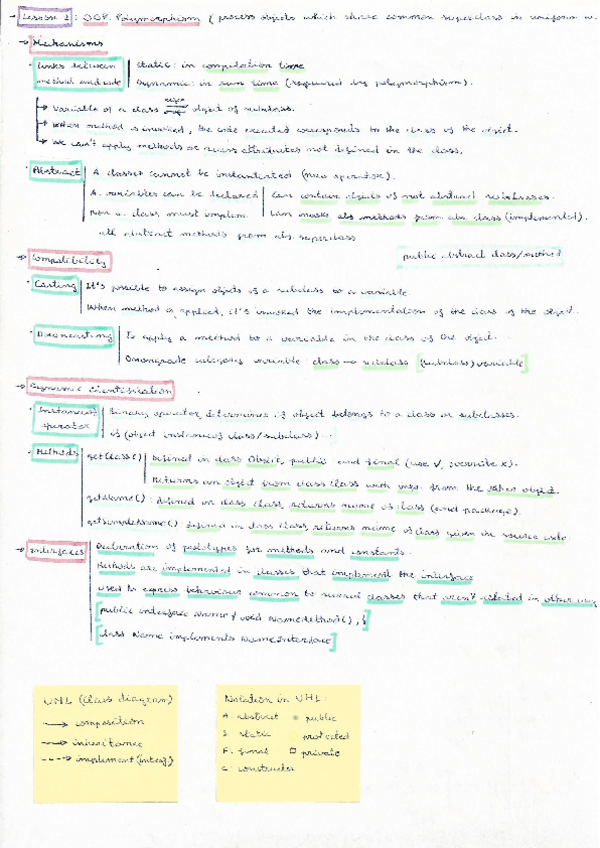 → Lesson 2: OOP. Polymorphism { process objects which share common superclass in uniform w.
→ Mechanisms
· Links between method and code | static: in compilation time
Dynamic: in run time (required by polymorphism).
→ Variable of a class object of subclass.
→ When method is invoked, the code executed corresponds to the class of the object.
→ We can't apply methods or access attributes not defined in the class.
· Abstract | A. classes cannot be instantiated (new operator).
A. variables can be declared | Can contain objects of not abstract subclasses.
Non a. class must implem. | Can invoke abs methods from abs class (implemented).
all abstract methods from abs superclass
public abstract class/method
→ Compatibility
· Casting | It's possible to assign objects of a subclass to a variable
When method is applied, it's invoked the implementation of the class of the object.
· Downcasting | To apply a method to a variable in the class of the object.
Downgrade category variable: class → subclass [(subclass) variable]
→ Dynamic identification
· Instanceof operator | Binary operator, determines if object belongs to a class or subclasses.
if (object instanceof class/subclass) ...
· Methods | getClass() | Defined in class Object, public and final (use √, overwrite x).
Returns an object from class Class with info from the other object.
getName(): defined in class Class, returns name of class (and package).
getSimpleName() defined in class Class, returns name of class given the source code
→ Interfaces | Declaration of prototypes for methods and constants.
Methods are implemented in classes that implement the interface
Used to express behaviour common to several classes that aren't related in other way
[public interface Name { void NameMethod(); }]
[class Name implements NameInterface]
UML (Class diagram)
→ composition
→ inheritance
---> implement (interf)
Notation in UML:
A: abstract public
S: static protected
F: final □ private
C: constructor